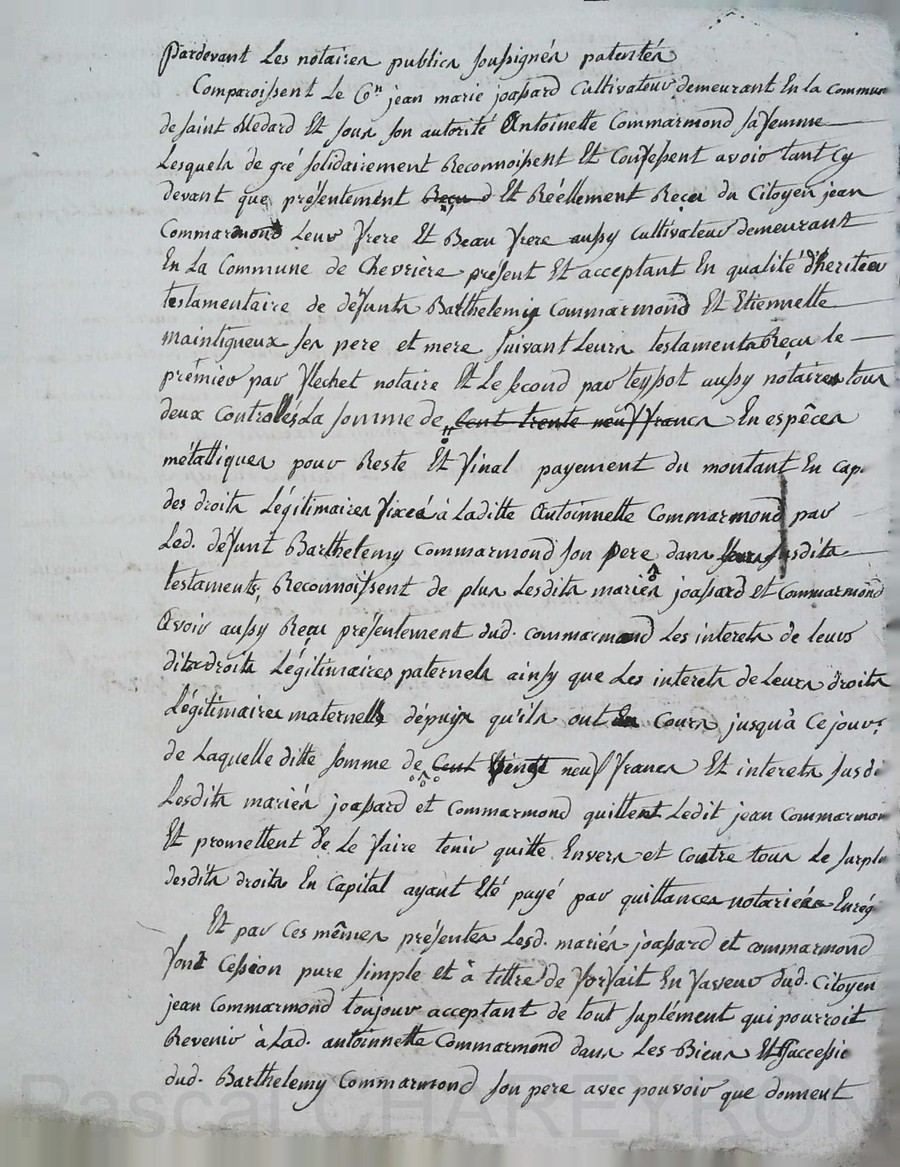 Pardevant Les notaires publics soussignés patentés
Comparoissent Le Cen jean marie joassard Cultivateur demeurant En la commun
de saint Medard Et sous son autorité Antoinette Commarmond sa femme
Lesquels de gré solidairement Reconnoissent Et Confessent avoir tant Cy
devant que présentement Reçu d Et Réellement Reçu du Citoyen jean
Commarmond Leur frere Et Beau frere aussy Cultivateur demeurant
En La Commune de Chevrière présent Et acceptant En qualité d'heritier
testamentaire de défunts Barthelemy Commarmond Et Etiennette
maintigneux ses pere et mere suivant Leurs testaments Reçu le
prémier par flechet notaire Et Le second par teyssot aussy nótaires tous
deux Contrôlés La somme de Cent trente neuf francs En espêces
métalliques pour Reste Et final payement du montant En cap.
des droits Légitimaires fixés à Laditte Antoinnette Commarmond par
Led. défunt Barthelemy Commarmond son pere dans susdits
testaments, Reconnoissent de plus Lesdits mariés joassard et Commarmond
Avoir aussy Reçu présentement dud. commarmond Les interets de leurs
dits droits Légitimaires paternels ainsy que Les interets de Leurs droits
Légitimaires maternels dépuis qu'ils ont Cours jusqu'à Ce jour.
de Laquelle ditte somme de Cent vingt neuf francs Et interets susdi
Lesdits mariés joassard et Commarmond quittent Ledit jean Commarmon
Et promettent de Le faire tenir quitte Envers et Contre tous Le surplu
desdits droits En Capital ayant Eté payé par quittances notariées Enrég
Et par Ces mêmes présentes Lesd. mariés joassard et commarmond
font Cession pure simple et à tittre de forfait En faveur dud. Citoyen
jean Commarmond toujour acceptant de tout suplément qui pourroit
Revenir à Lad. antoinnette Commarmond dans Les Biens Et successio
dud. Barthelemy Commarmond son pere avec pouvoir que donnent
Pascal CHAREYRON